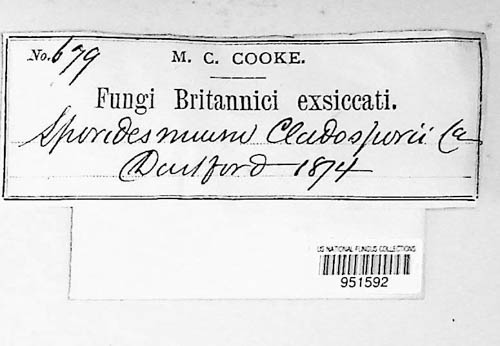 No. 679 M. C. COOKE.
Fungi Britannici exsiccati.
Sporidesmium Cladosporii Ca
Dartford 1874
US NATIONAL FUNGUS COLLECTIONS
951592